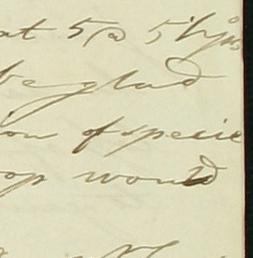 at 5 @ 5
be glad
ion of specie
op would